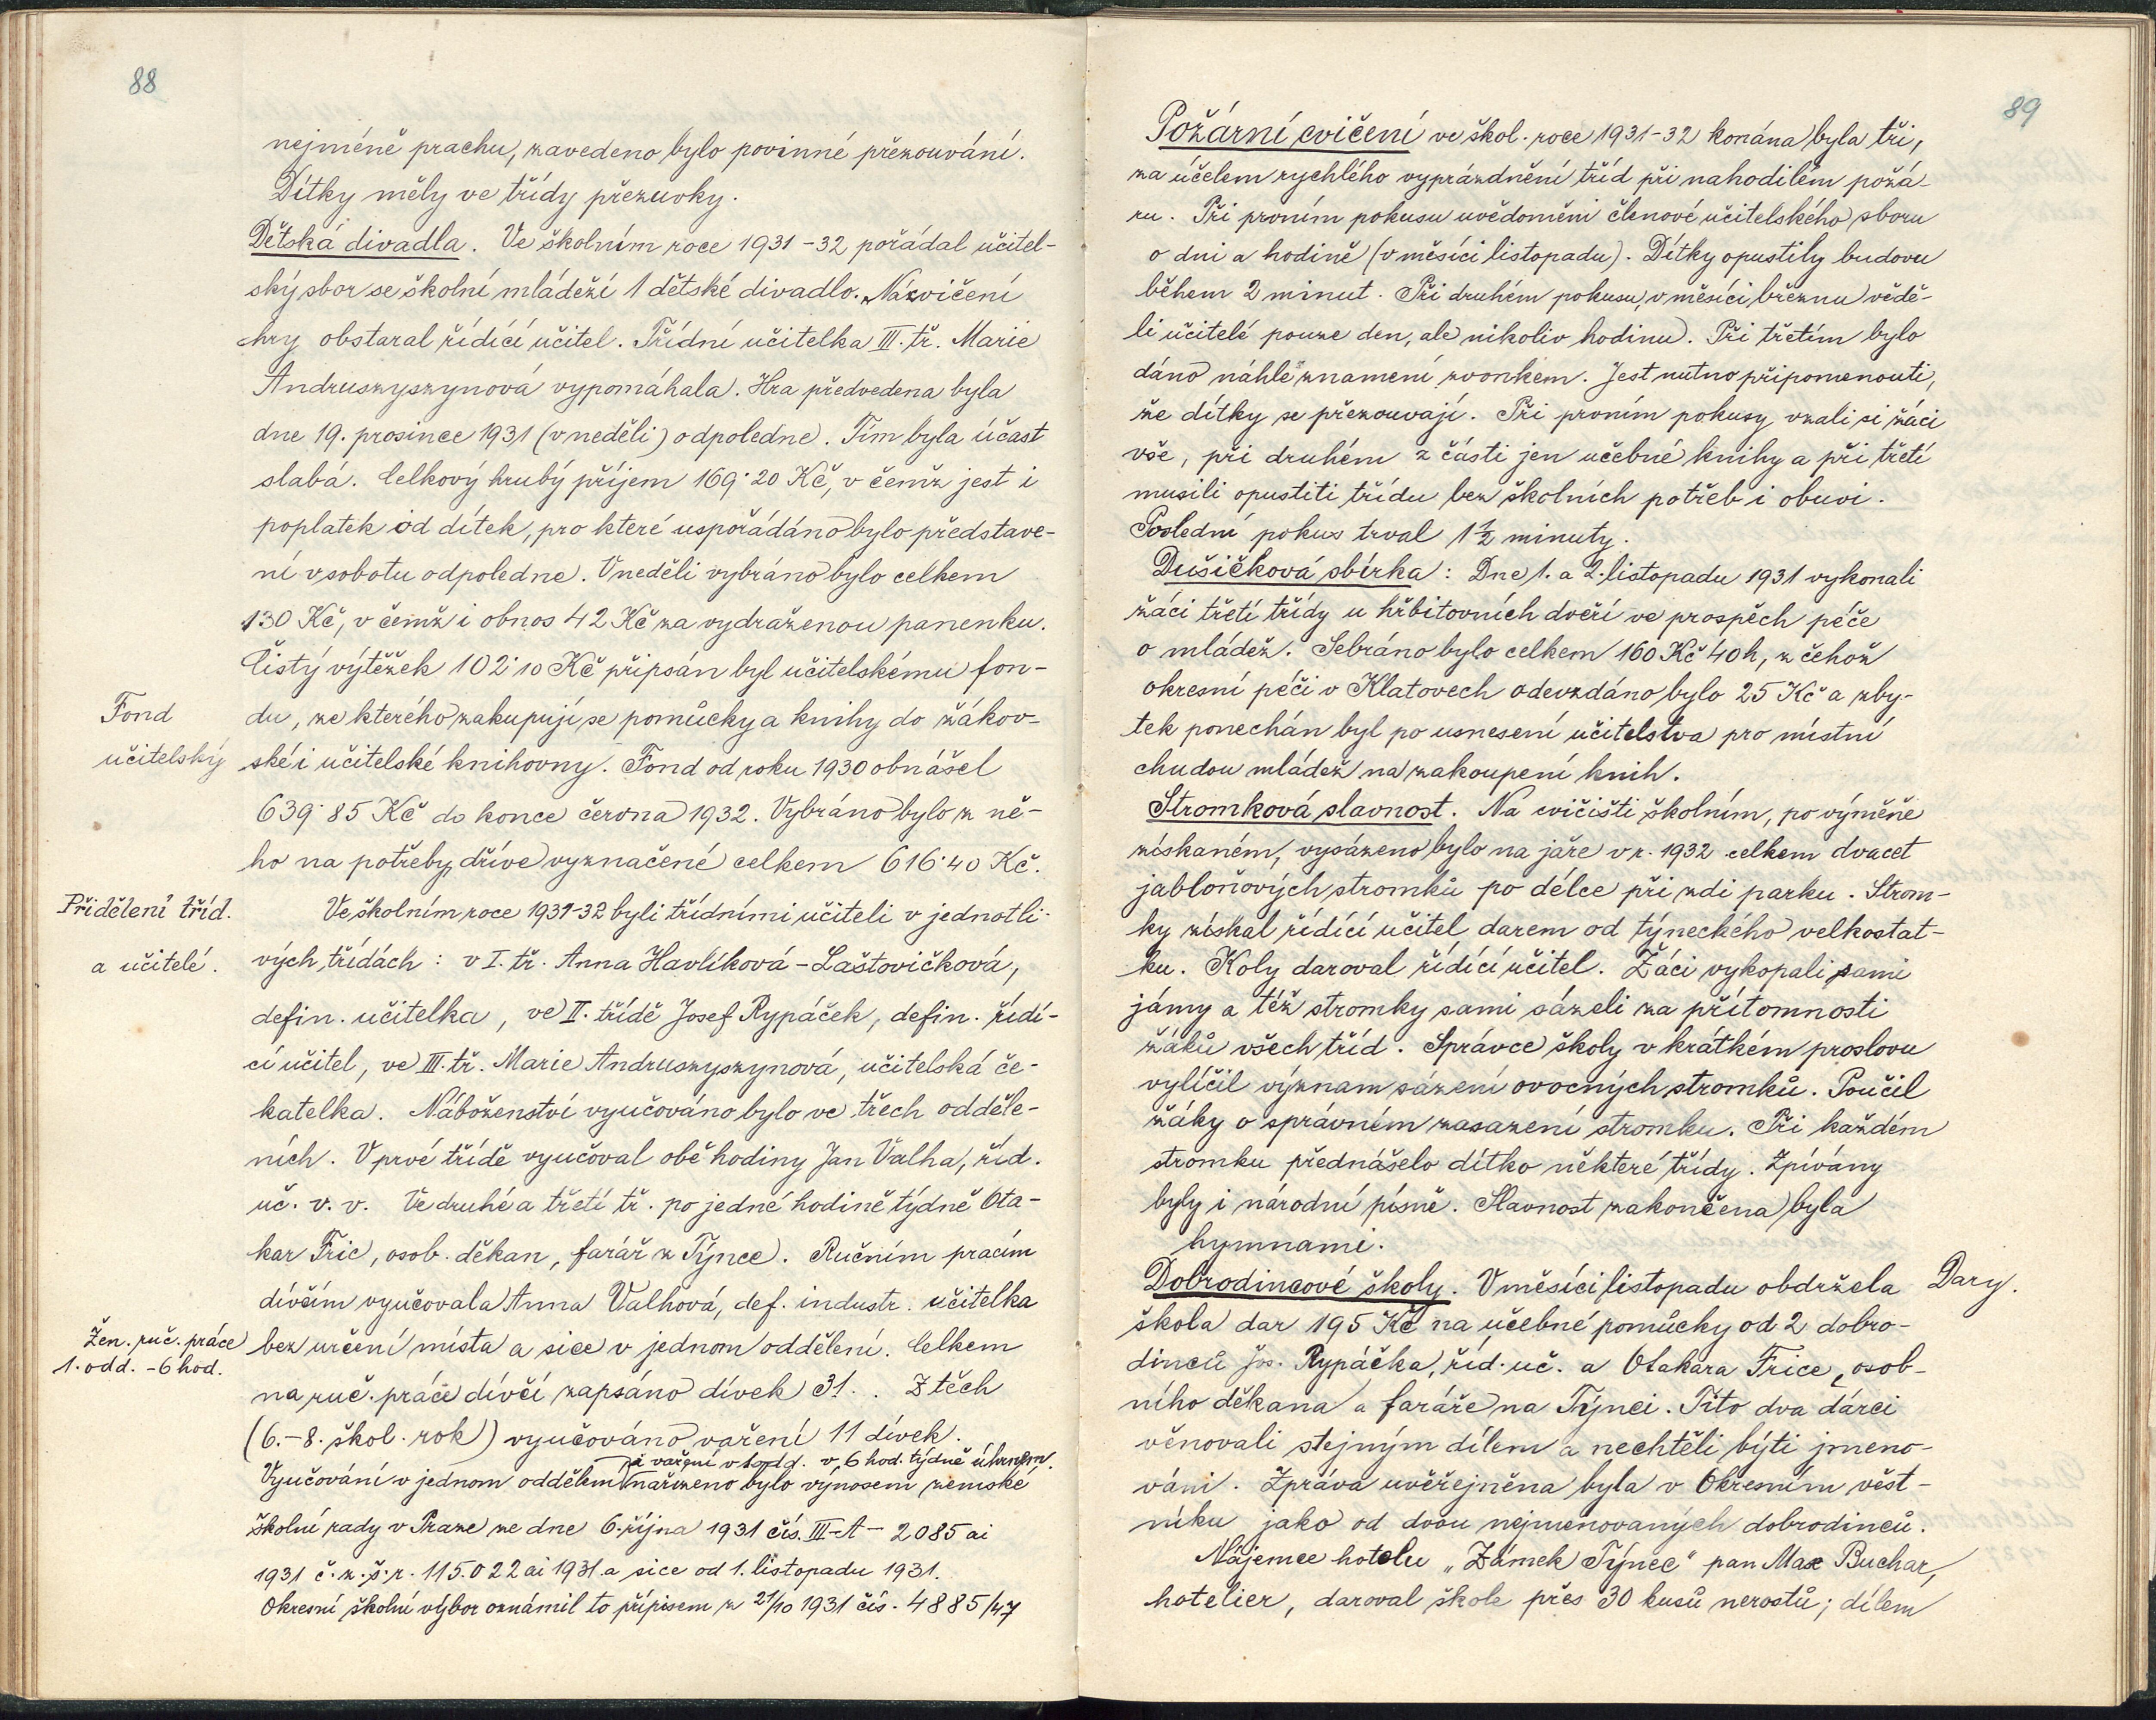 88
nejméně prachu, zavedeno bylo povinné přezouvání.
Dítky měly ve třídy přezuvky.
Dětská divadla. Ve školním roce 1931-32 pořádal učitel-
ský sbor se školní mládeží 1 dětské divadlo. Názvičení
hry obstaral řídící učitel. Třídní učitelka III. tř. Marie
Andruszyszynová vypomáhala. Hra předvedena byla
dne 19. prosince 1931 (v neděli) odpoledne. Tím byla účast
slabá. Celkový hrubý příjem 169·20 Kč, v čemž jest i
poplatek od dítek, pro které uspořádáno bylo představe-
ní v sobotu odpoledne. V neděli vybráno bylo celkem
130 Kč, v čemž i obnos 42 Kč za vydraženou panenku.
Čistý výtěžek 102·10 Kč připsán byl učitelskému fon-
Fond
du, ze kterého zakupují se pomůcky a knihy do žákov-
učitelský
ské i učitelské knihovny. Fond od roku 1930 obnášel
639·85 Kč do konce června 1932. Vybráno bylo z ně-
ho na potřeby dříve vyznačené celkem 616·40 Kč.
Přidělení tříd.
Ve školním roce 1931-32 byli třídními učiteli v jednotli-
a učitelé.
vých třídách: v I. tř. Anna Havlíková-Laštovičková,
defin. učitelka, ve II. třídě Josef Rypáček, defin. řídí-
cí učitel, ve III. tř. Marie Andruszyszynová, učitelská če-
katelka. Náboženství vyučováno bylo ve třech odděle-
ních. V prvé třídě vyučoval obě hodiny Jan Valha, říd.
uč. v. v. Ve druhé a třetí tř. po jedné hodině týdně Ota-
kar Fric, osob. děkan, farář z Týnce. Ručním pracím
dívčím vyučovala Anna Valhová, def. industr. učitelka
Žen. ruč. práce
bez určení místa a sice v jednom oddělení. Celkem
1. odd. - 6 hod.
na ruč. práce dívčí zapsáno dívek 31. . Z těch
(6.-8. škol. rok) vyučováno vaření 11 dívek.
i vaření v 1 odd. v 6 hod. týdně úhrnem.
Vyučování v jednom oddělení nařízeno bylo výnosem zemské
školní rady v Praze ze dne 6. října 1931 čís. III-A- 2085 ai
1931 č. z. š. r. 115.022 ai 1931 a sice od 1. listopadu 1931.
Okresní školní výbor oznámil to přípisem z 21/10 1931 čís. 4885/47
89
Požární cvičení ve škol. roce 1931-32 konána byla tři,
za účelem rychlého vyprázdnění tříd při nahodilém požá-
ru. Při prvním pokusu uvědoměni členové učitelského sboru
o dni a hodině (v měsíci listopadu). Dítky opustily budovu
během 2 minut. Při druhém pokusu, v měsíci březnu vědě-
li učitelé pouze den, ale nikoliv hodinu. Při třetím bylo
dáno náhlé znamení zvonkem. Jest nutno připomenouti,
že dítky se přezouvají. Při prvním pokusy vzali si žáci
vše, při druhém z části jen učebné knihy a při třetí
musili opustiti třídu bez školních potřeb i obuvi.
Poslední pokus trval 1½ minuty.
Dušičková sbírka: Dne 1. a 2. listopadu 1931 vykonali
žáci třetí třídy u hřbitovních dveří ve prospěch péče
o mládež. Sebráno bylo celkem 160 Kč 40 h, z čehož
okresní péči v Klatovech odevzdáno bylo 25 Kč a zby-
tek ponechán byl po usnesení učitelstva pro místní
chudou mládež na zakoupení knih.
Stromková slavnost. Na cvičišti školním, po výměně
získaném, vysázeno bylo na jaře v r. 1932 celkem dvacet
jabloňových stromků po délce při zdi parku. Strom-
ky získal řídící učitel darem od týneckého velkostat-
ku. Koly daroval řídící učitel. Žáci vykopali sami
jámy a též stromky sami sázeli za přítomnosti
žáků všech tříd. Správce školy v krátkém proslovu
vylíčil význam sázení ovocných stromků. Poučil
žáky o správném zasazení stromku. Při každém
stromku přednášelo dítko některé třídy. Zpívány
byly i národní písně. Slavnost zakončena byla
hymnami.
Dobrodincové školy. V měsíci listopadu obdržela
Dary.
škola dar 195 Kč na učebné pomůcky od 2 dobro-
dinců Jos. Rypáčka, říd. uč. a Otakara Frice, osob-
ního děkana a faráře na Týnci. Tito dva dárci
věnovali stejným dílem a nechtěli býti jmeno-
váni. Zpráva uvěřejněna byla v Okresním věst-
níku jako od dvou nejmenovaných dobrodinců.
Nájemce hotelu „Zámek Týnec" pan Max Buchar,
hotelier, daroval škole přes 30 kusů nerostů; dílem